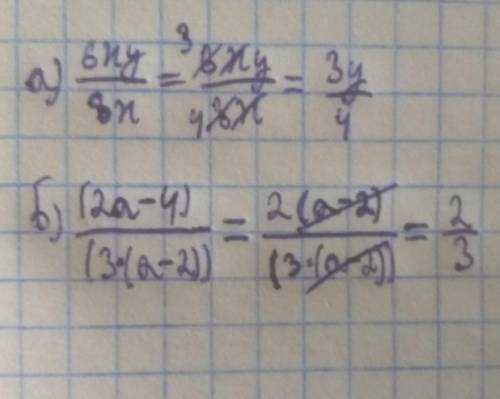 а) 6xy/8x = ³6xy/₄8x = 3y/4
б) (2a-4)/(3·(a-2)) = 2(a-2)/(3·(a-2)) = 2/3